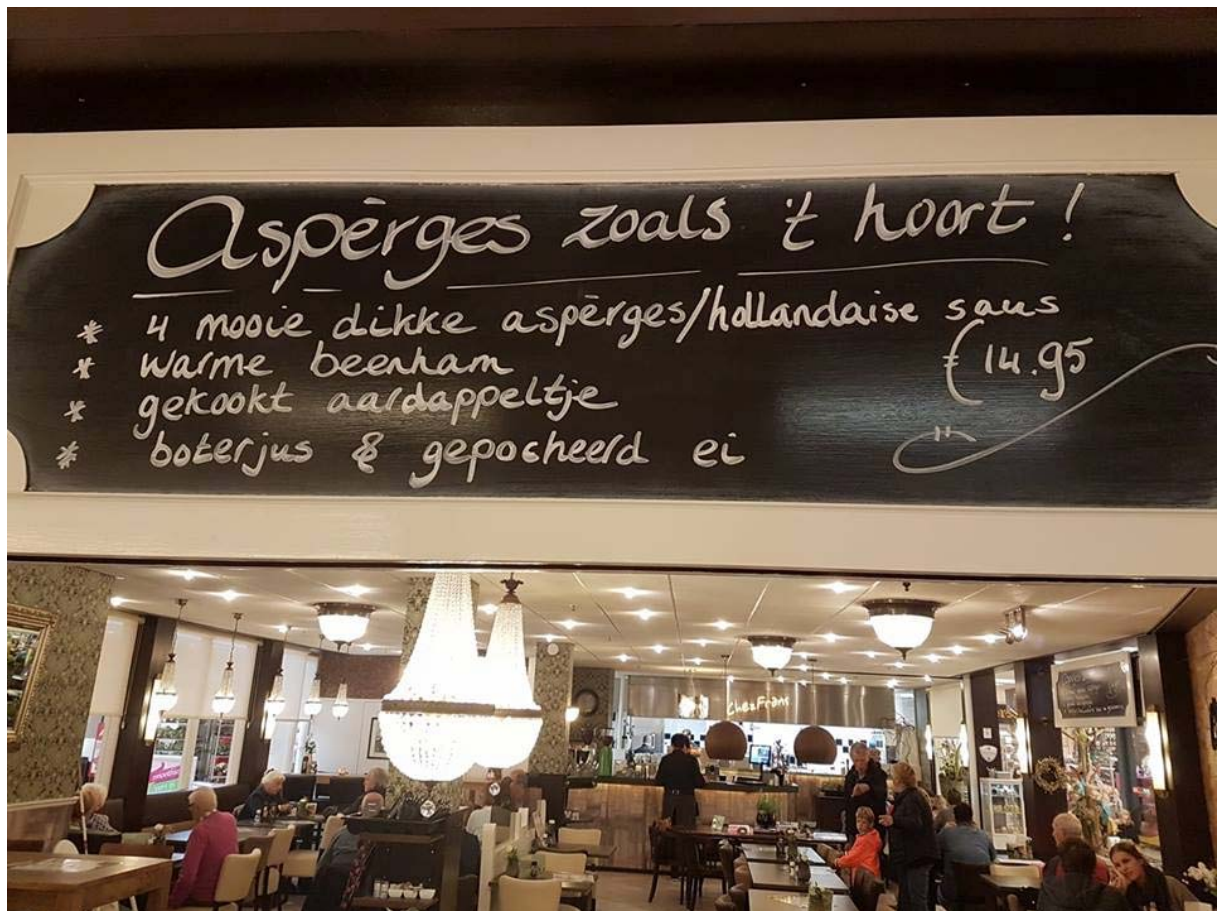 Aspèrges zoals 't hoort!
* 4 mooie dikke aspèrges/hollandaise saus
* warme beenham
€ 14.95
* gekookt aardappeltje
* boterjus & gepocheerd ei
Chez Frans